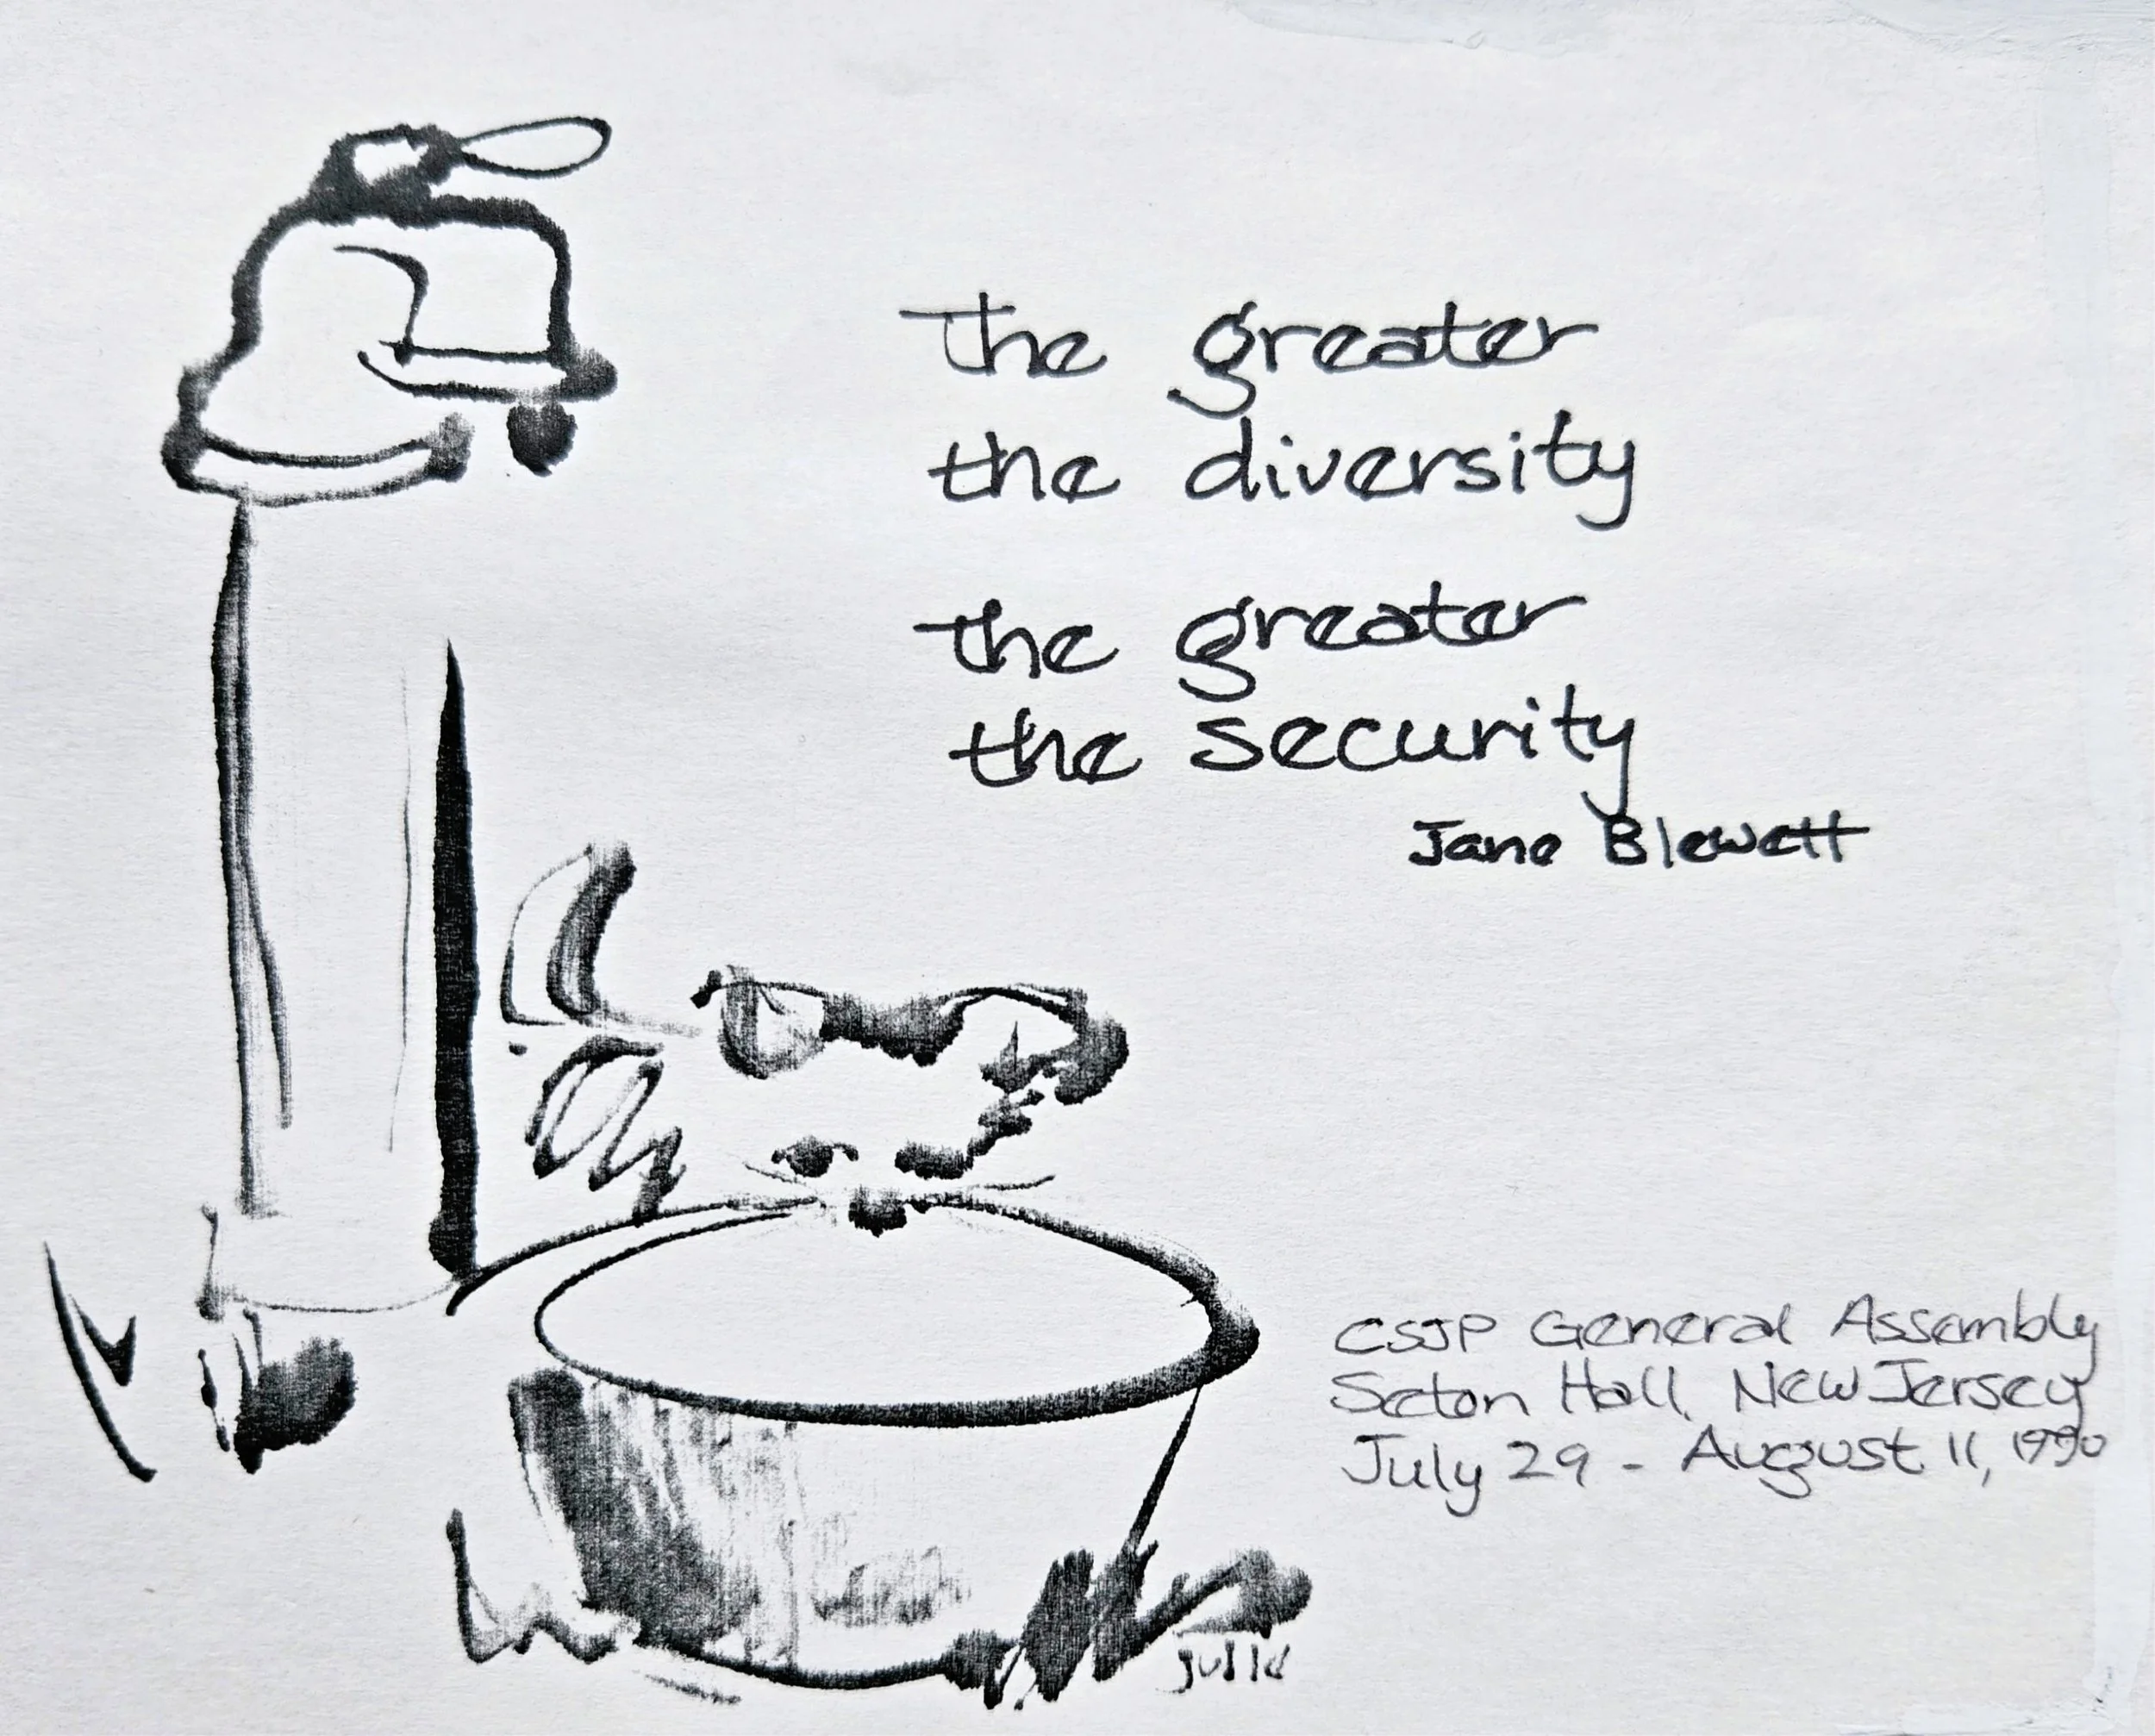 The greater
the diversity
the greater
the security
Jane Blewett
CSJP General Assembly
Seton Hall, New Jersey
July 29 - August 11, 1990
julie